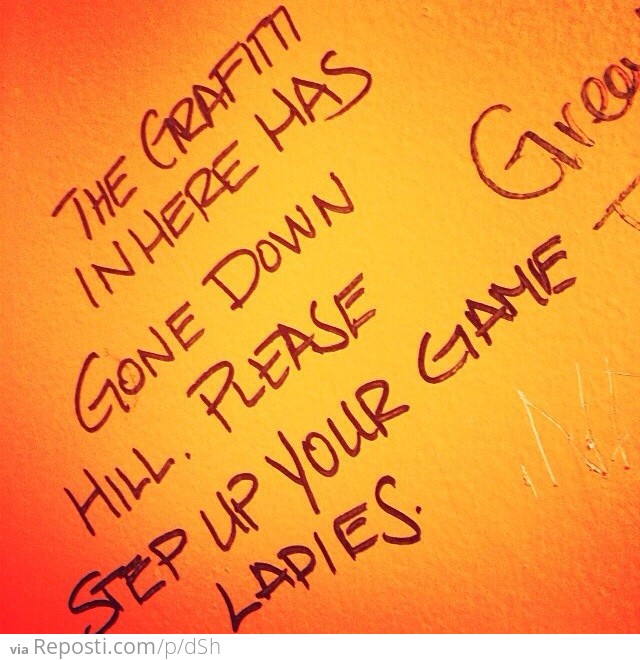 THE GRAFITTI
IN HERE HAS
GONE DOWN
HILL. PLEASE
STEP UP YOUR GAME
LADIES.
via Reposti.com/p/dSh